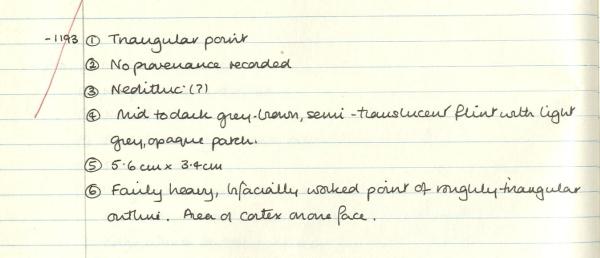 -1193 ① Triangular point
② No provenance recorded
③ Neolithic (?)
④ Mid to dark grey-brown, semi-translucent flint with light
grey, opaque patch.
⑤ 5.6 cm x 3.4 cm
⑥ Fairly heavy, bifacially worked point of roughly-triangular
outline. Area of cortex on one face.